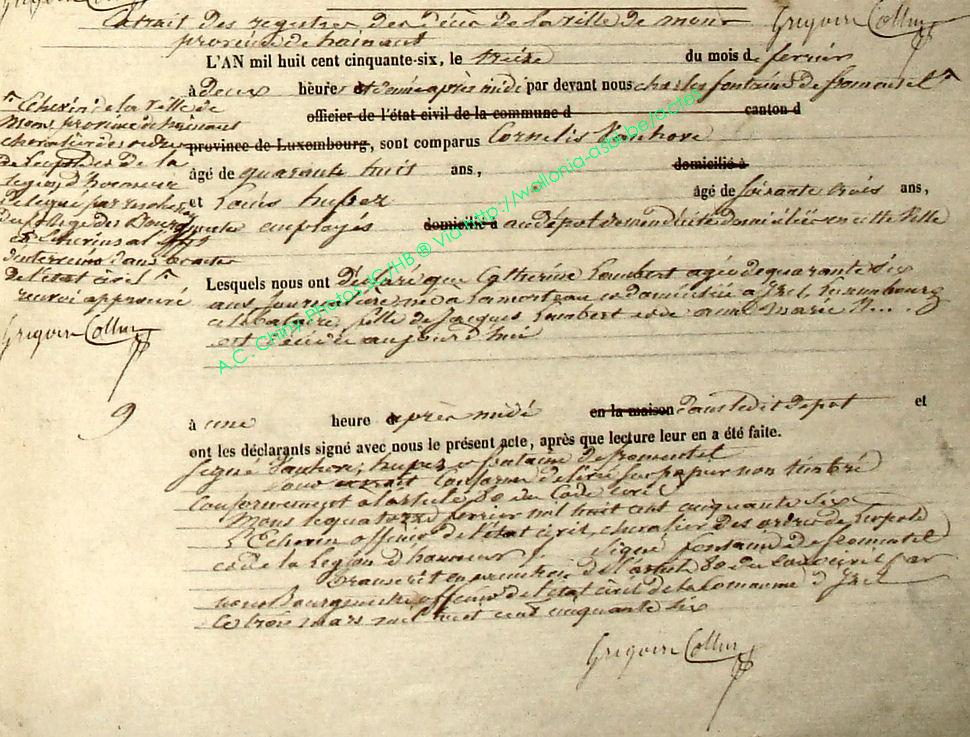 Extrait des registres des décès de la ville de mons
province de hainaut
Gregoire Collin
L'AN mil huit cent cinquante-six, le treize du mois de fevrier
à deux heures et demie après midi par devant nous charles fontaine de fromentel
officier de l'état civil de la commune d canton d
province de Luxembourg, sont comparus Cornelis Vanhove
âgé de quarante huit ans, domicilié à
et Louis hufrez âgé de soixante trois ans,
employés domicilié à au dépot de mendicité domiciliés en cette ville
Echevin de la ville de
Mons, province de hainaut
chevalier des ordres
de Leopold et de la
legion d'honneur
college des Bourg
de l'état civil
renvoi approuvé
Gregoire Collin
Lesquels nous ont déclaré que Catherine Lambert agée de quarante six
ans journalière, née a Lamorteau et domiciliée à Izel, Luxembourg
celibataire, fille de Jacques Lambert et de anne marie N...
est décédée aujourd'hui
9
à une heure après midi en la maison dans ledit depot et
ont les déclarants signé avec nous le présent acte, après que lecture leur en a été faite.
signé Vanhove, hufrez et fontaine de fromentel
Pour extrait conforme delivré sur papier non timbré
conformement à l'article 80 du Code civil
Mons le quatorze fevrier mil huit cent cinquante six
L'Echevin officier de l'état civil, chevalier des ordres de Leopold
et de la Legion d'honneur signé fontaine de fromentel
Transcrit en exécution de l'article 80 du code civil par
nous Bourgmestre officier de l'état civil de la Commune d'Izel
le trois mars mil huit cent cinquante six
Gregoire Collin
A.C. Chiny Photos SCFHB ® Via http://wallonia-asbl.be/actes